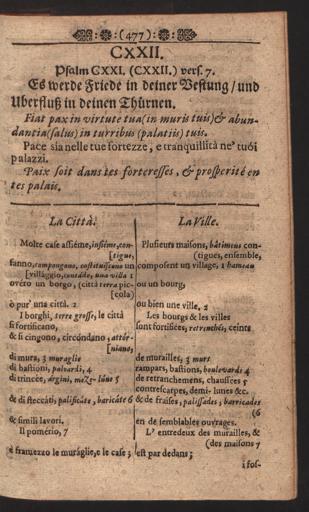 (477)
CXXII.
Psalm CXXI. (CXXII.) vers. 7.
Es werde Friede in deiner Vestung / und
Uberfluß in deinen Thürnen.
Fiat pax in virtute tua (in muris tuis) & abun-
dantia (salus) in turribus (palatiis) tuis.
Pace sia nelle tue fortezze, e tranquillità ne' tuoi
palazzi.
Paix soit dans tes forteresses, & prosperité en
tes palais.
La Città.
Molte case assiéme, insiéme, con-
[tigue,
fanno, compongono, costituiscono un
[villággio, una villa 1
overo un borgo, (città terra pic-
[cola)
ò pur' una città. 2
I borghi, terre grosse, le città
si fortificano,
& si cingono, circóndano, attór-
[niano,
di mura, 3 muraglie
di bastioni, palvardi, 4
di trincée, árgini, 5
& di steccáti, palificáte, baricáte 6
& simili lavori.
Il pomério, 7
è framezzo le muráglie, e le case;
La Ville.
Plusieurs maisons, bâtimens con-
(tiguës, ensemble,
composent un village, 1 hameau
ou un bourg,
ou bien une ville, 2
Les bourgs & les villes
sont fortifiées, retrenchés, ceints
de murailles, 3 murs
rampars, bastions, boulevards 4
de retranchemens, chaussées 5
contrescarpes, demi-lunes &c.
& de fraises, palissades, barricades
(6
en de semblables ouvrages.
L' entredeux des murailles, &
(des maisons 7
est par dedans;
i fos-